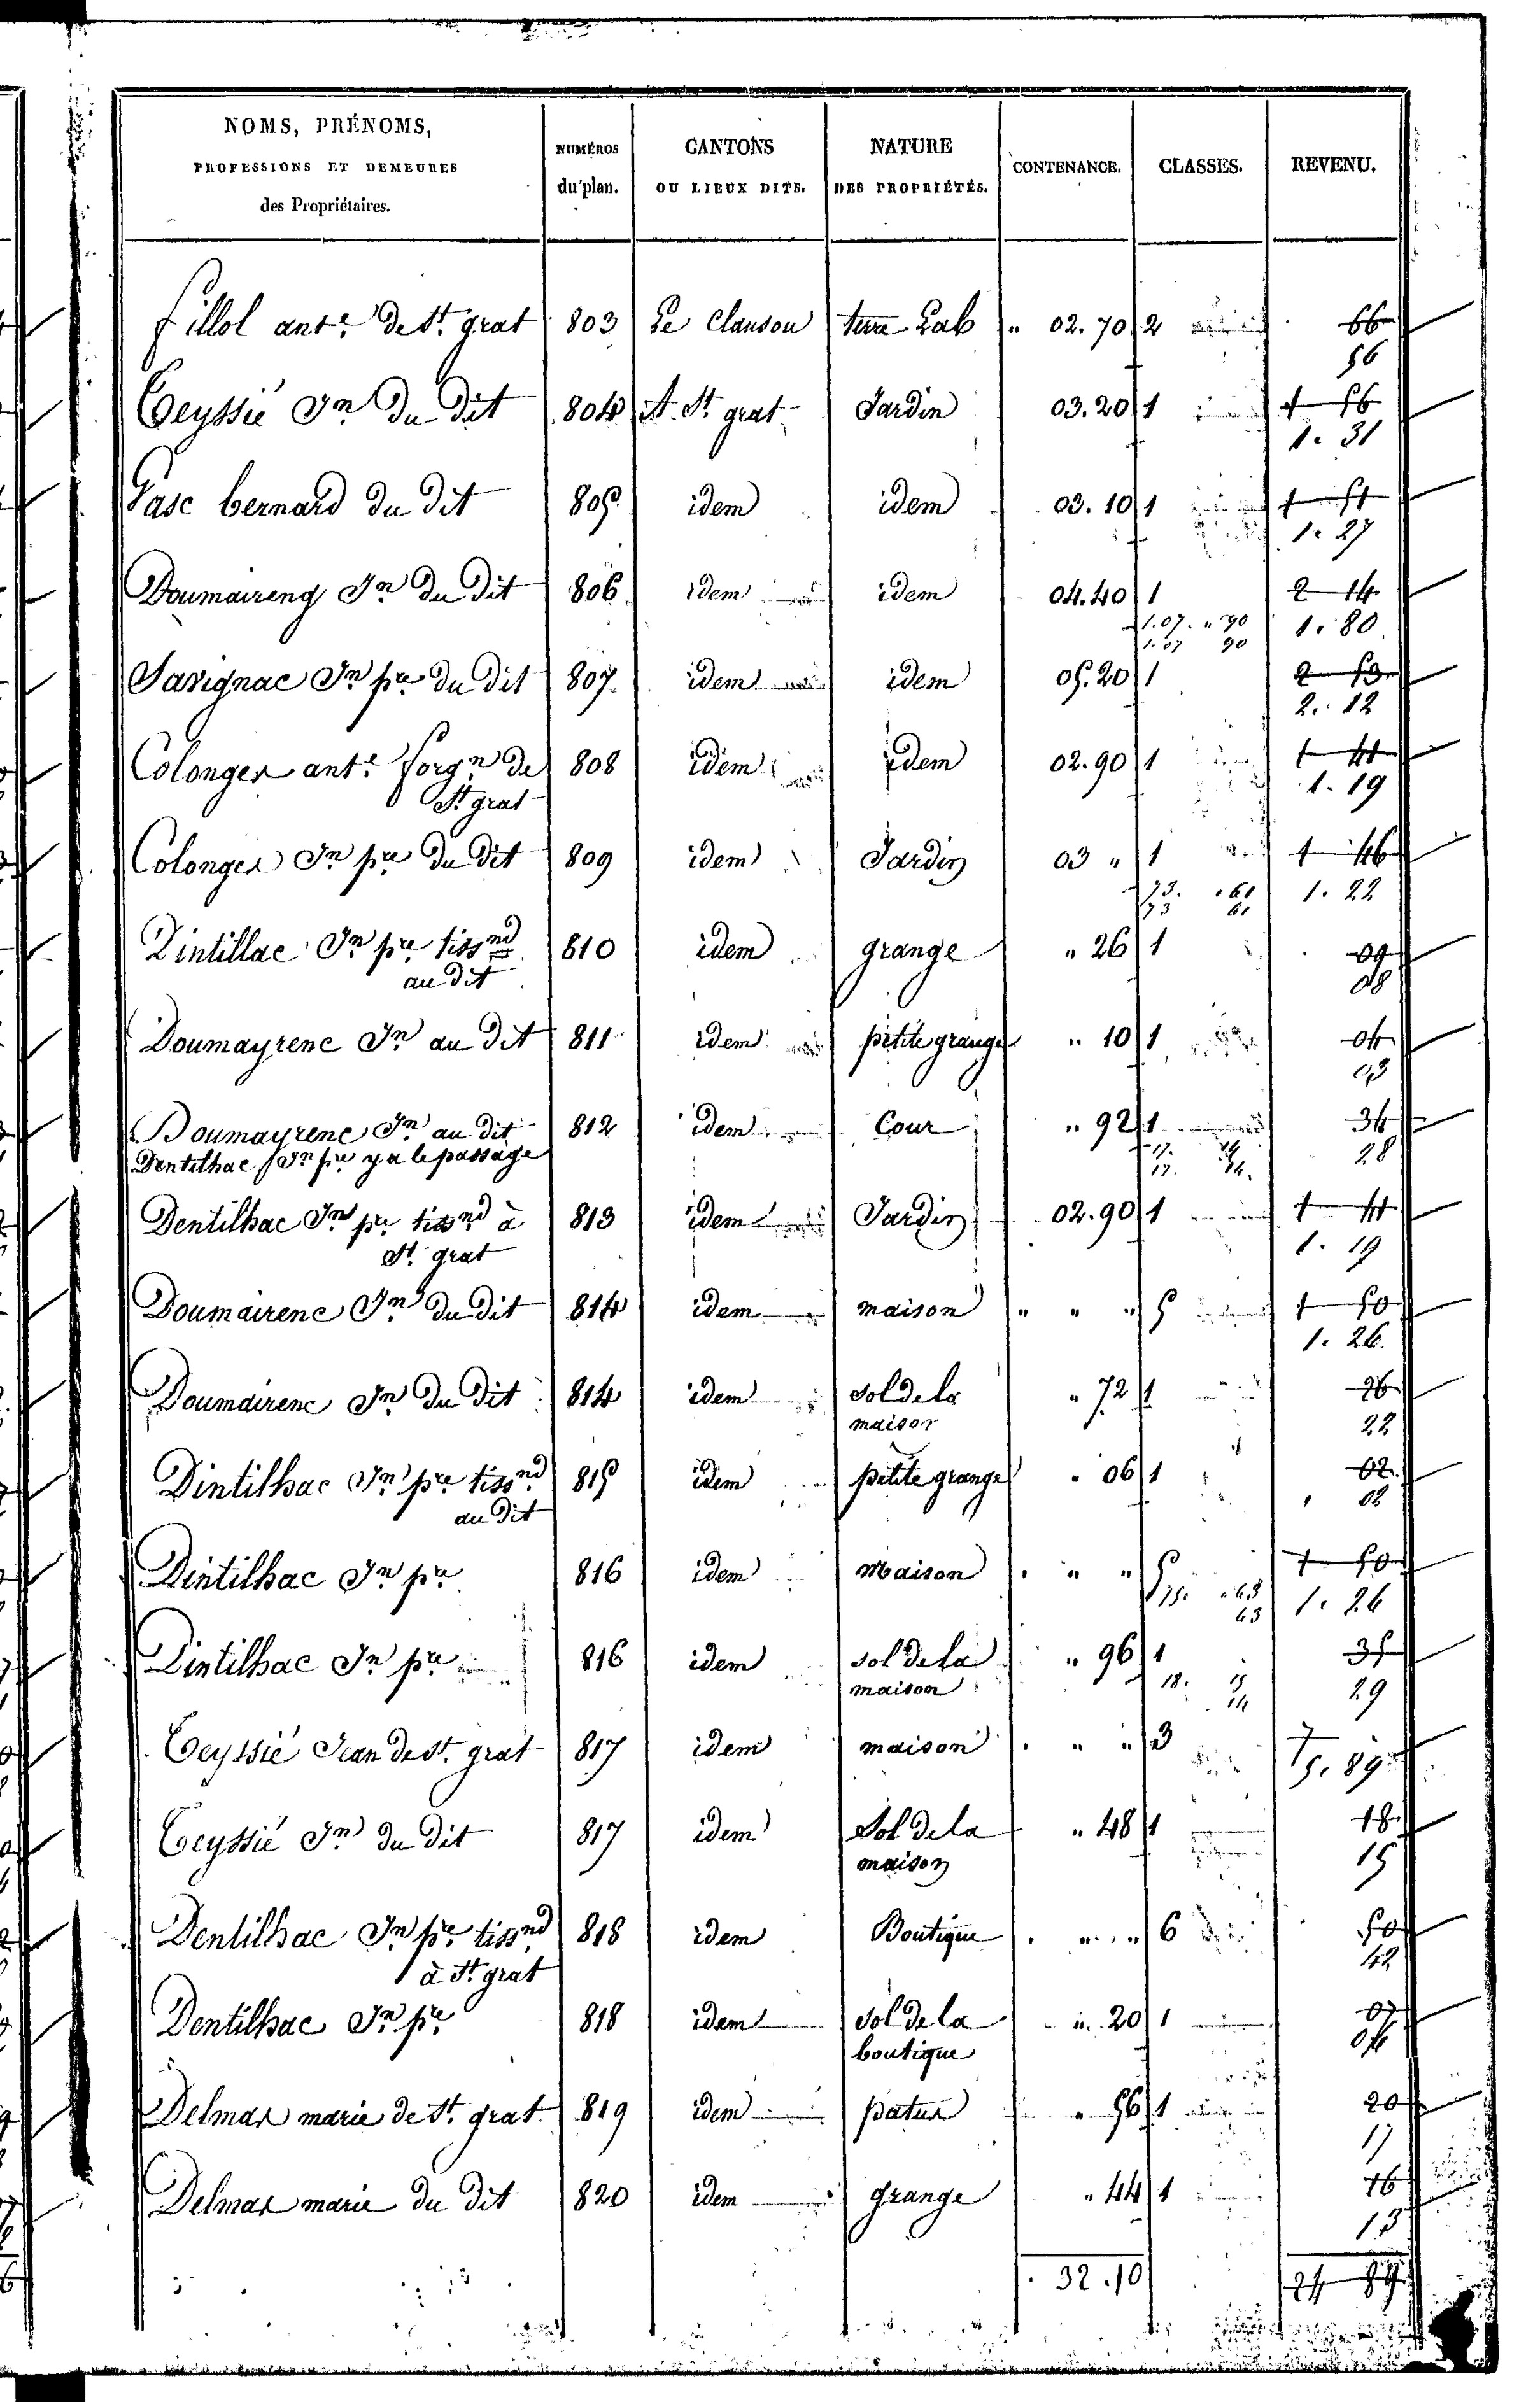 NOMS, PRÉNOMS, PROFESSIONS ET DEMEURES des Propriétaires. NUMÉROS du plan. CANTONS OU LIEUX DITS. NATURE DES PROPRIÉTÉS. CONTENANCE. CLASSES. REVENU.
fillol ante de St grat 803 Le Clausou terre Lab " 02.70 2 66
56
Teyssié Jn du dit 804 A St grat Jardin 03.20 1 1 56
1. 31
Gasc bernard du dit 805 idem idem 03.10 1 1 51
1. 27
Doumaireng Jn du dit 806 idem idem 04.40 1 2 14
1.07. " 90 1. 80
1.07 90
Savignac Jn pre du dit 807 idem idem 05.20 1 2 53
2. 12
Colonges ante forgn de 808 idem idem 02.90 1 1 41
St grat 1. 19
Colonges Jn pre du dit 809 idem Jardin 03 " 1 1 46
73. " 61 1. 22
73 61
Dintillac Jn pre tissnd 810 idem grange " 26 1 09
au dit 08
Doumayrenc Jn au dit 811 idem petite grange " 10 1 04
03
Doumayrenc Jn au dit 812 idem Cour " 92 1 34
Dentilhac Jn pre y a le passage 17. 14 28
17. 14.
Dentilhac Jn pre tissnd à 813 idem Jardin 02.90 1 1 41
St grat 1. 19
Doumairenc Jn du dit 814 idem maison " " " 5 1 50
1. 26.
Doumairenc Jn du dit 814 idem sol de la " 72 1 26
maison 22
Dintilhac Jn pre tissnd 815 idem petite grange " 06 1 02
au dit 02
Dintilhac Jn pre 816 idem Maison " " " 5 1 50
75. " 63 1. 26
63
Dintilhac Jn pre 816 idem sol de la " 96 1 35
maison 18. 15 29
14
Teyssié Jean de St grat 817 idem maison " " " 3 7
5. 89
Teyssié Jn du dit 817 idem Sol de la " 48 1 18
maison 15
Dentilhac Jn pre tissnd 818 idem Boutique " " " 6 50
à St grat 42
Dentilhac Jn pre 818 idem sol de la " 20 1 07
boutique 06
Delmas marie de St grat 819 idem patus " 56 1 20
17
Delmas marie du dit 820 idem grange " 44 1 16
13
32.10 24 89